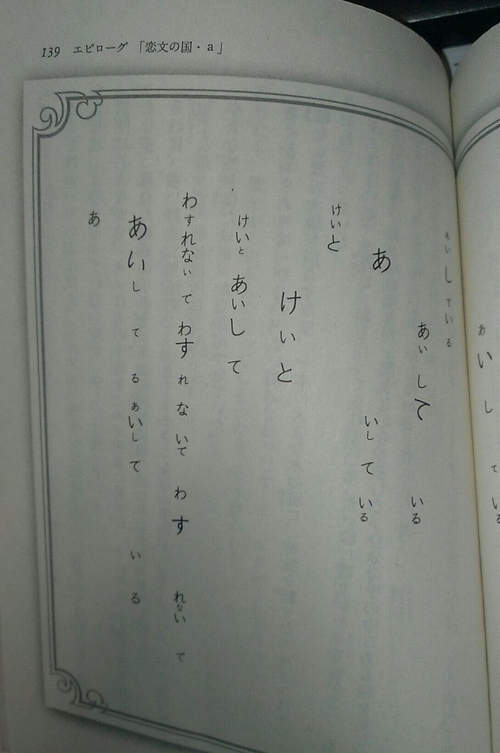 139 エピローグ 「恋文の国・a」
あいしている
あいしている
あいしている
あ
いしている
けいと
けいと
けいとあいして
わすれないでわすれないでわすれないで
あいしてるあいしている
あ